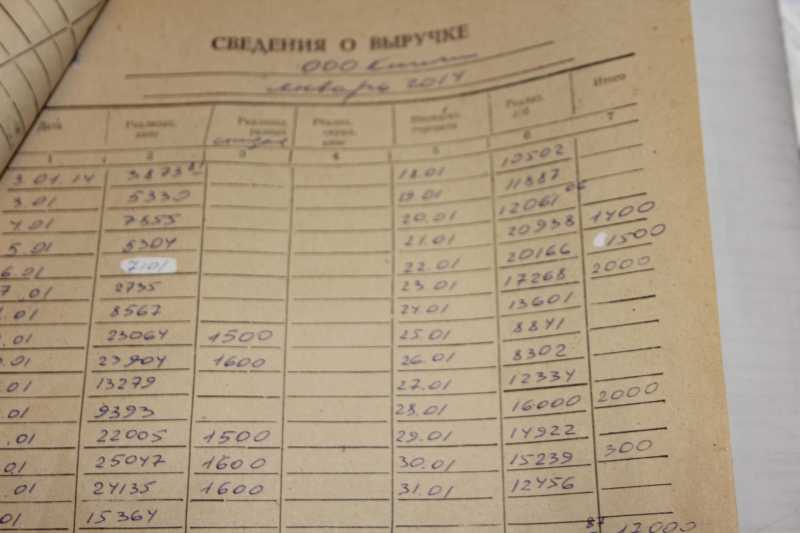 СВЕДЕНИЯ О ВЫРУЧКЕ
ООО
январь 2014
Дата Итого
1 2 3 4 5 6 7
3.01.14 3873 18.01 10502
3.01 5330 19.01 11887
4.01 7855 20.01 12061
5.01 8304 21.01 20938 1400
6.01 7101 22.01 20166 1500
7.01 2735 23.01 17268 2000
.01 8567 24.01 13601
.01 23064 1500 25.01 8841
.01 23904 1600 26.01 8302
.01 13279 27.01 12334
.01 9393 28.01 16000 2000
.01 22005 1500 29.01 14922
.01 25047 1600 30.01 15239 300
.01 24135 1600 31.01 12456
01 15364
12000